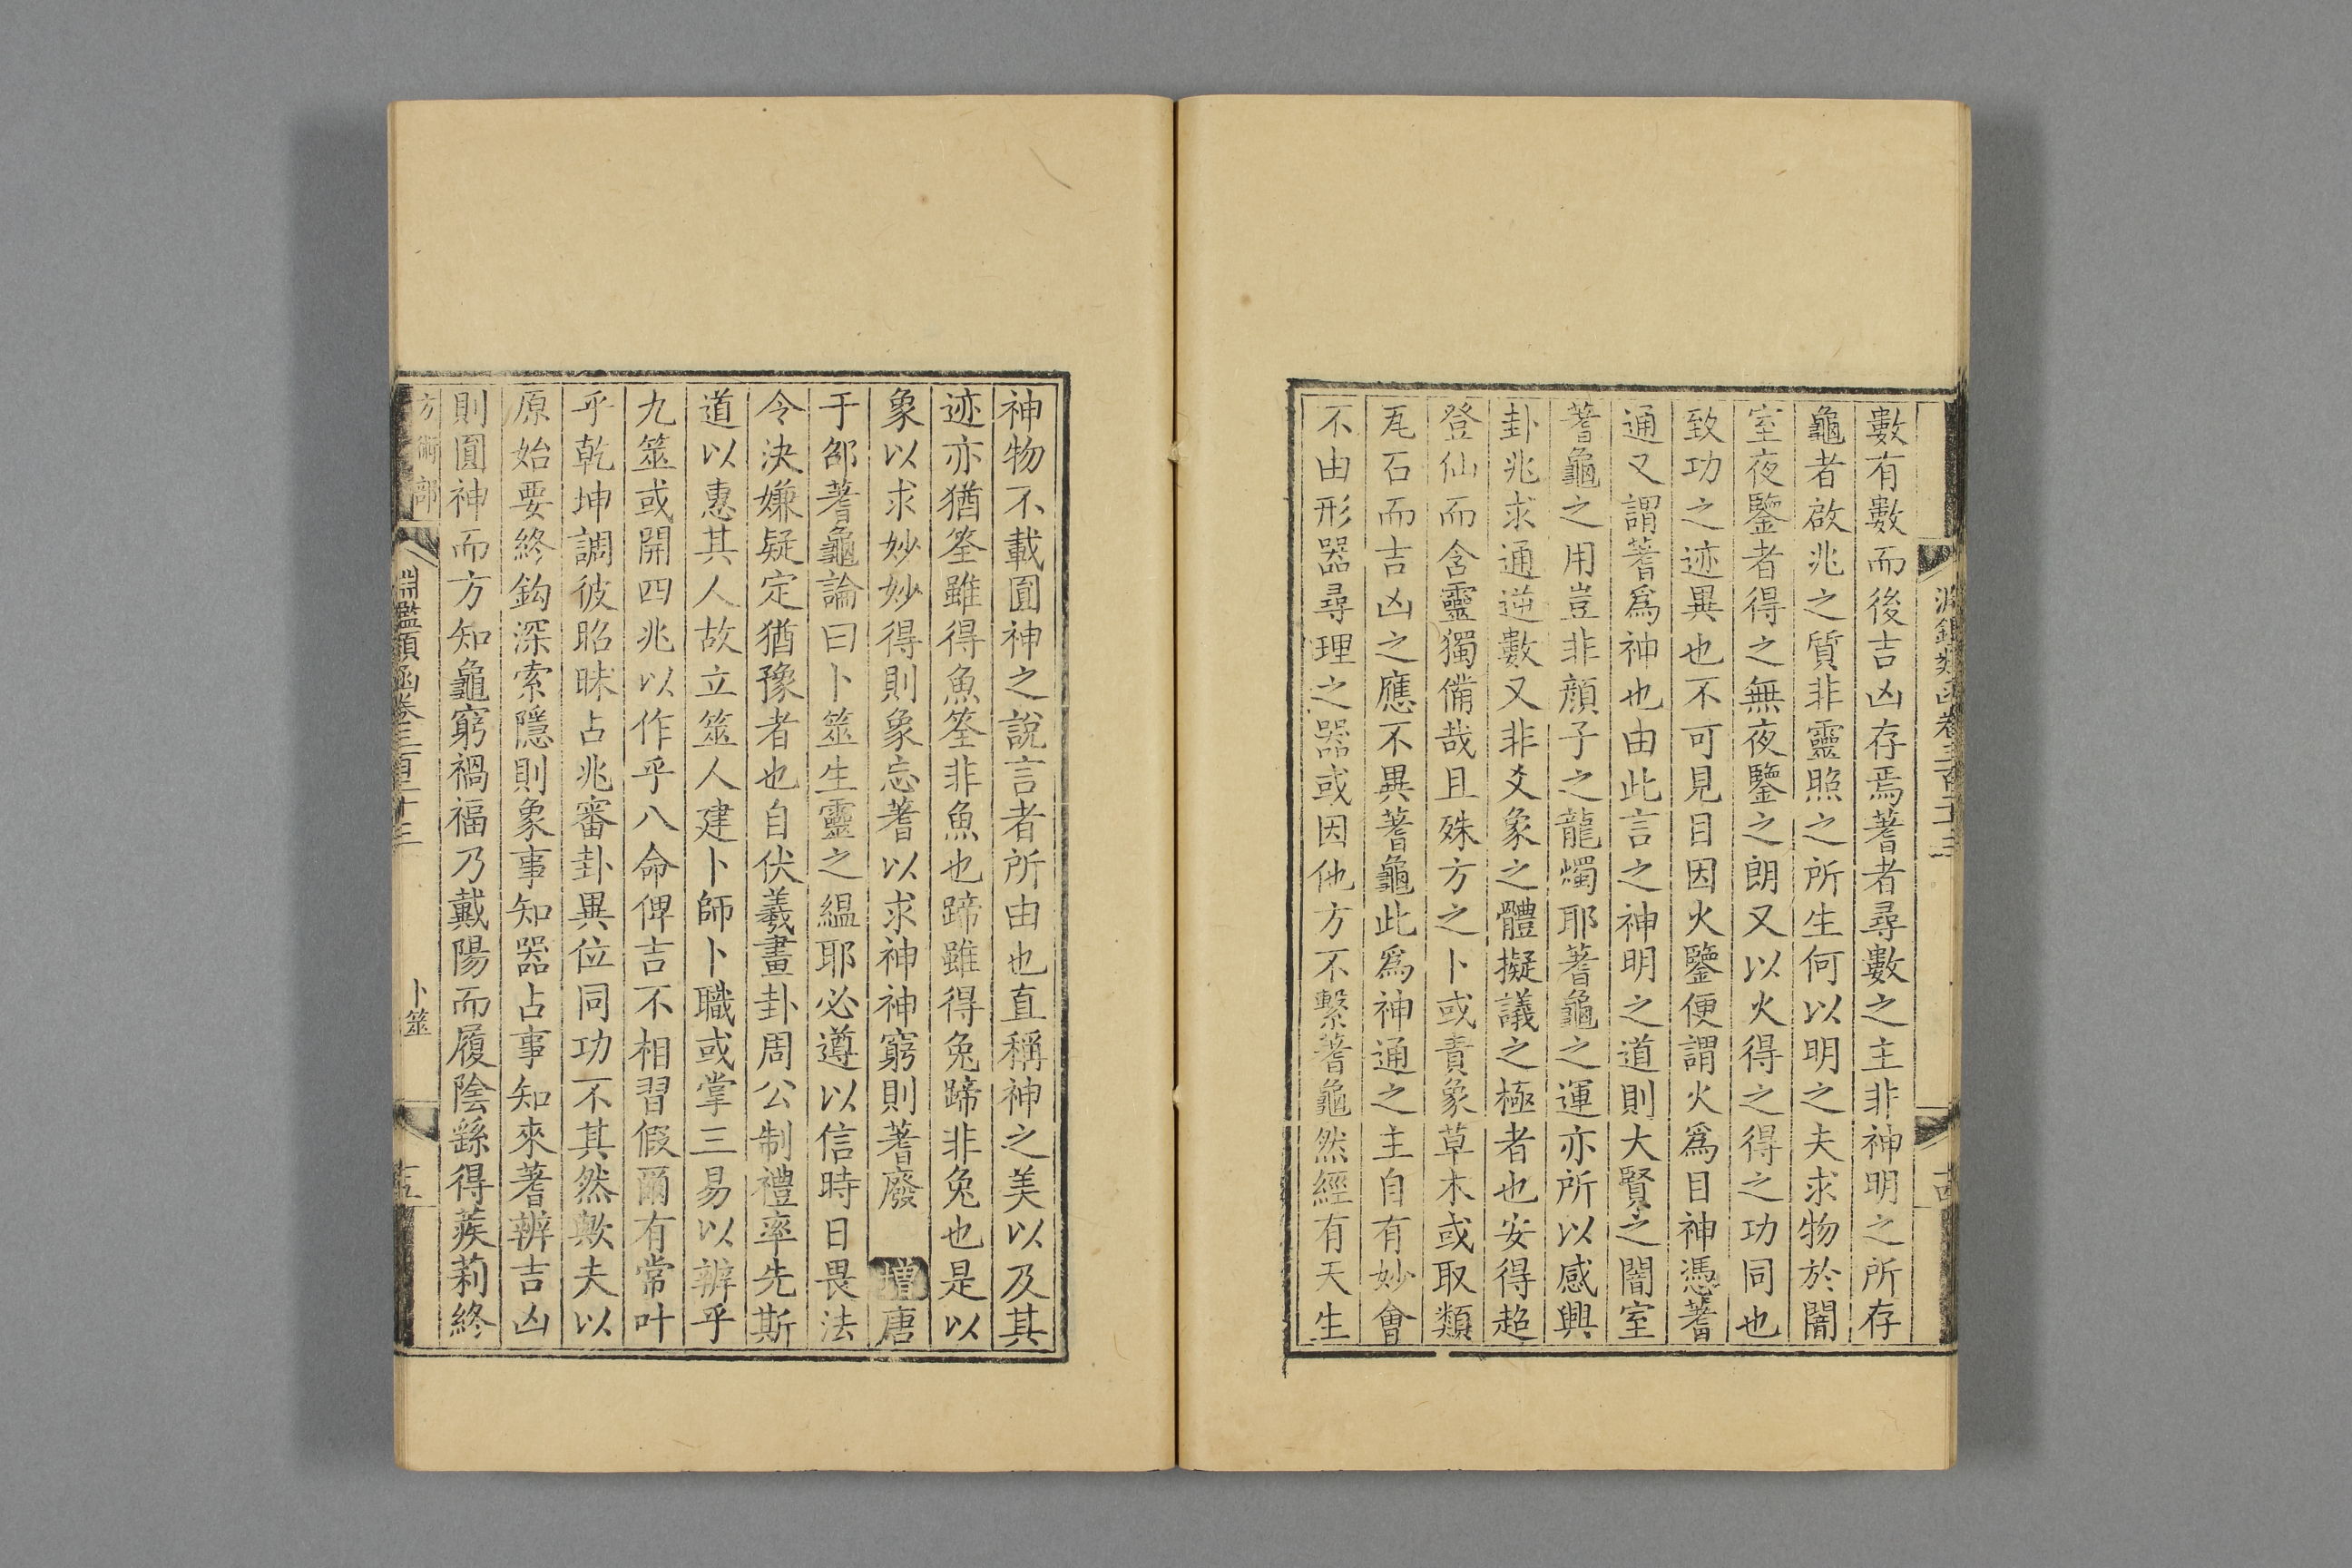 淵鑑類函卷三百二十三
十四
數有數而後吉凶存焉蓍者尋數之主非神明之所存
龜者啟兆之質非靈照之所生何以明之夫求物於闇
室夜鑒者得之無夜鑒之朗又以火得之得之功同也
致功之迹異也不可見目因火鑒便謂火爲目神憑蓍
通又謂蓍爲神也由此言之神明之道則大賢之闇室
蓍龜之用豈非顏子之龍燭耶蓍龜之運亦所以感興
卦兆求通逆數又非爻象之體擬議之極者也安得超
登仙而含靈獨備哉且殊方之卜或責象草木或取類
瓦石而吉凶之應不異蓍龜此爲神通之主自有妙會
不由形器尋理之器或因他方不繫蓍龜然經有天生
神物不載圓神之說言者所由也直稱神之美以及其
迹亦猶筌雖得魚筌非魚也蹄雖得兔蹄非兔也是以
象以求妙妙得則象忘蓍以求神神窮則蓍廢 增唐
于邵蓍龜論曰卜筮生靈之縕耶必遵以信時日畏法
令決嫌疑定猶豫者也自伏羲畫卦周公制禮率先斯
道以惠其人故立筮人建卜師卜職或掌三易以辨乎
九筮或開四兆以作乎八命俾吉不相習假爾有常叶
乎乾坤調彼昭昧占兆審卦異位同功不其然歟夫以
原始要終鈎深索隱則象事知器占事知來蓍辨吉凶
則圓神而方知龜窮禍福乃戴陽而履陰繇得蒺莉終
方術部
淵鑑類函卷三百二十三
卜筮
十五